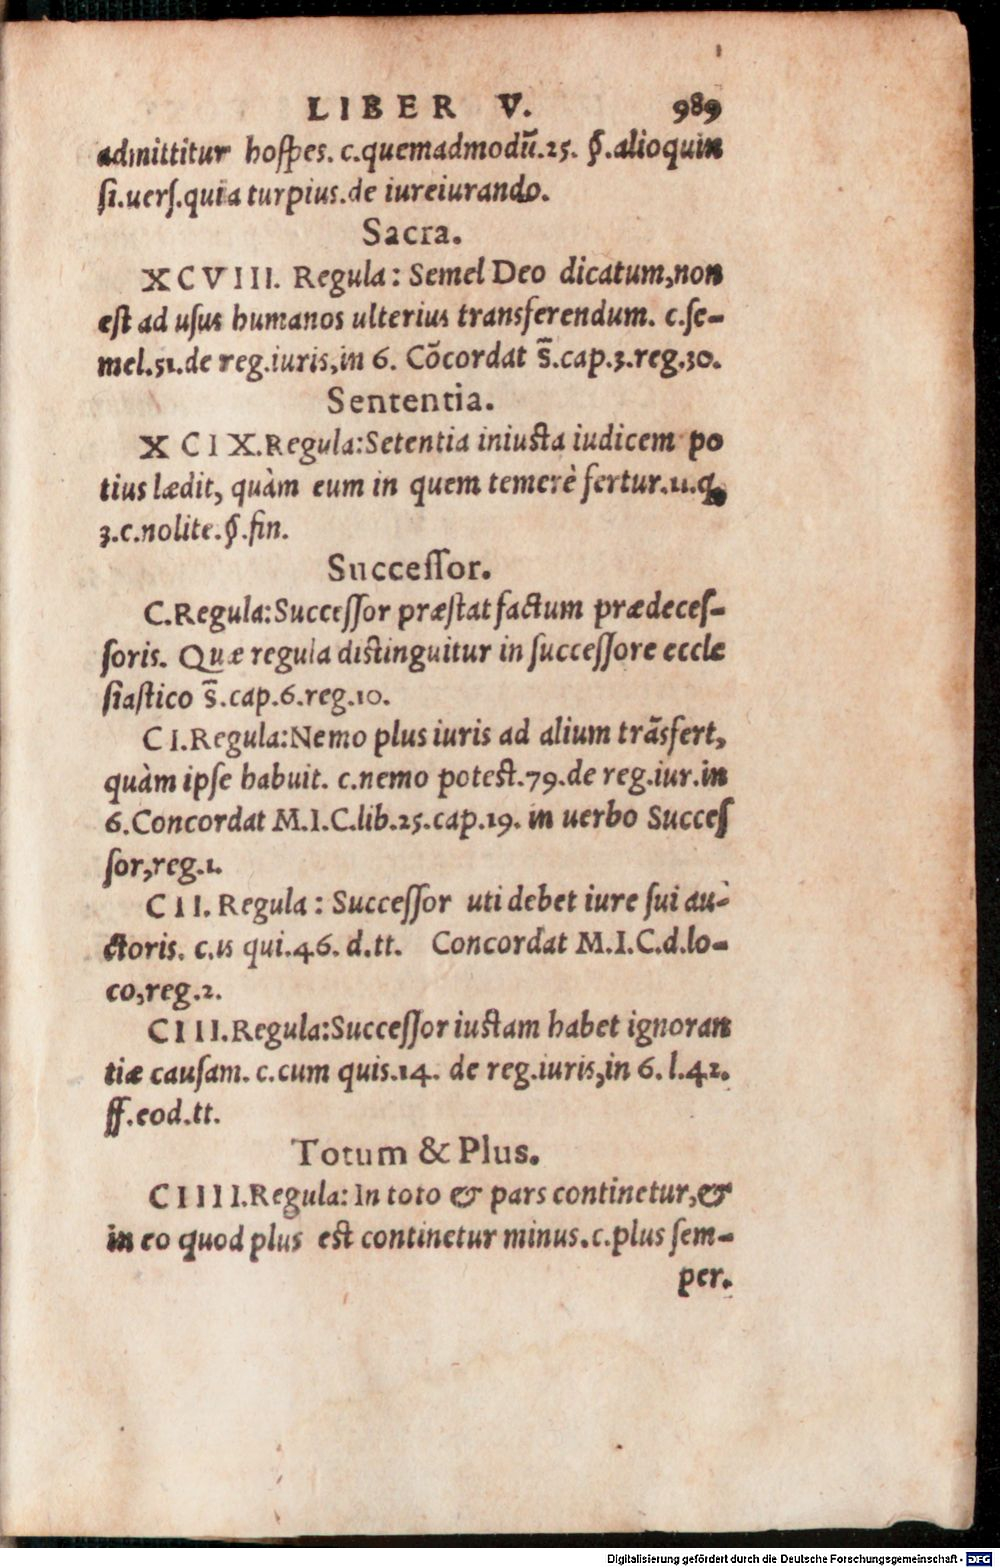 LIBER V. 989
admittitur hoſpes. c.quemadmodū.25. §.alioquin
ſi.uerſ.quia turpius.de iureiurando.
Sacra.
XCVIII. Regula: Semel Deo dicatum,non
eſt ad uſus humanos ulterius transferendum. c.ſe-
mel.51.de reg.iuris,in 6. Cōcordat s̄.cap.3.reg.30.
Sententia.
XCIX.Regula:Setentia iniuſta iudicem po
tius lædit, quàm eum in quem temerè fertur.11.q.
3.c.nolite.§.fin.
Succeſſor.
C.Regula:Succeſſor præſtat factum prædeceſ-
ſoris. Quæ regula diſtinguitur in ſucceſſore eccle
ſiaſtico s̄.cap.6.reg.10.
CI.Regula:Nemo plus iuris ad alium trāsfert,
quàm ipſe habuit. c.nemo poteſt.79.de reg.iur.in
6.Concordat M.I.C.lib.25.cap.19. in uerbo Succeſ
ſor,reg.1.
CII. Regula: Succeſſor uti debet iure ſui au-
ctoris. c.is qui.46. d.tt. Concordat M.I.C.d.lo-
co,reg.2.
CIII.Regula:Succeſſor iuſtam habet ignoran
tiæ cauſam. c.cum quis.14. de reg.iuris,in 6. l.42.
ff.eod.tt.
Totum & Plus.
CIIII.Regula: In toto & pars continetur,&
in eo quod plus eſt continetur minus.c.plus ſem-
per.
Digitalisierung gefördert durch die Deutsche Forschungsgemeinschaft - DFG